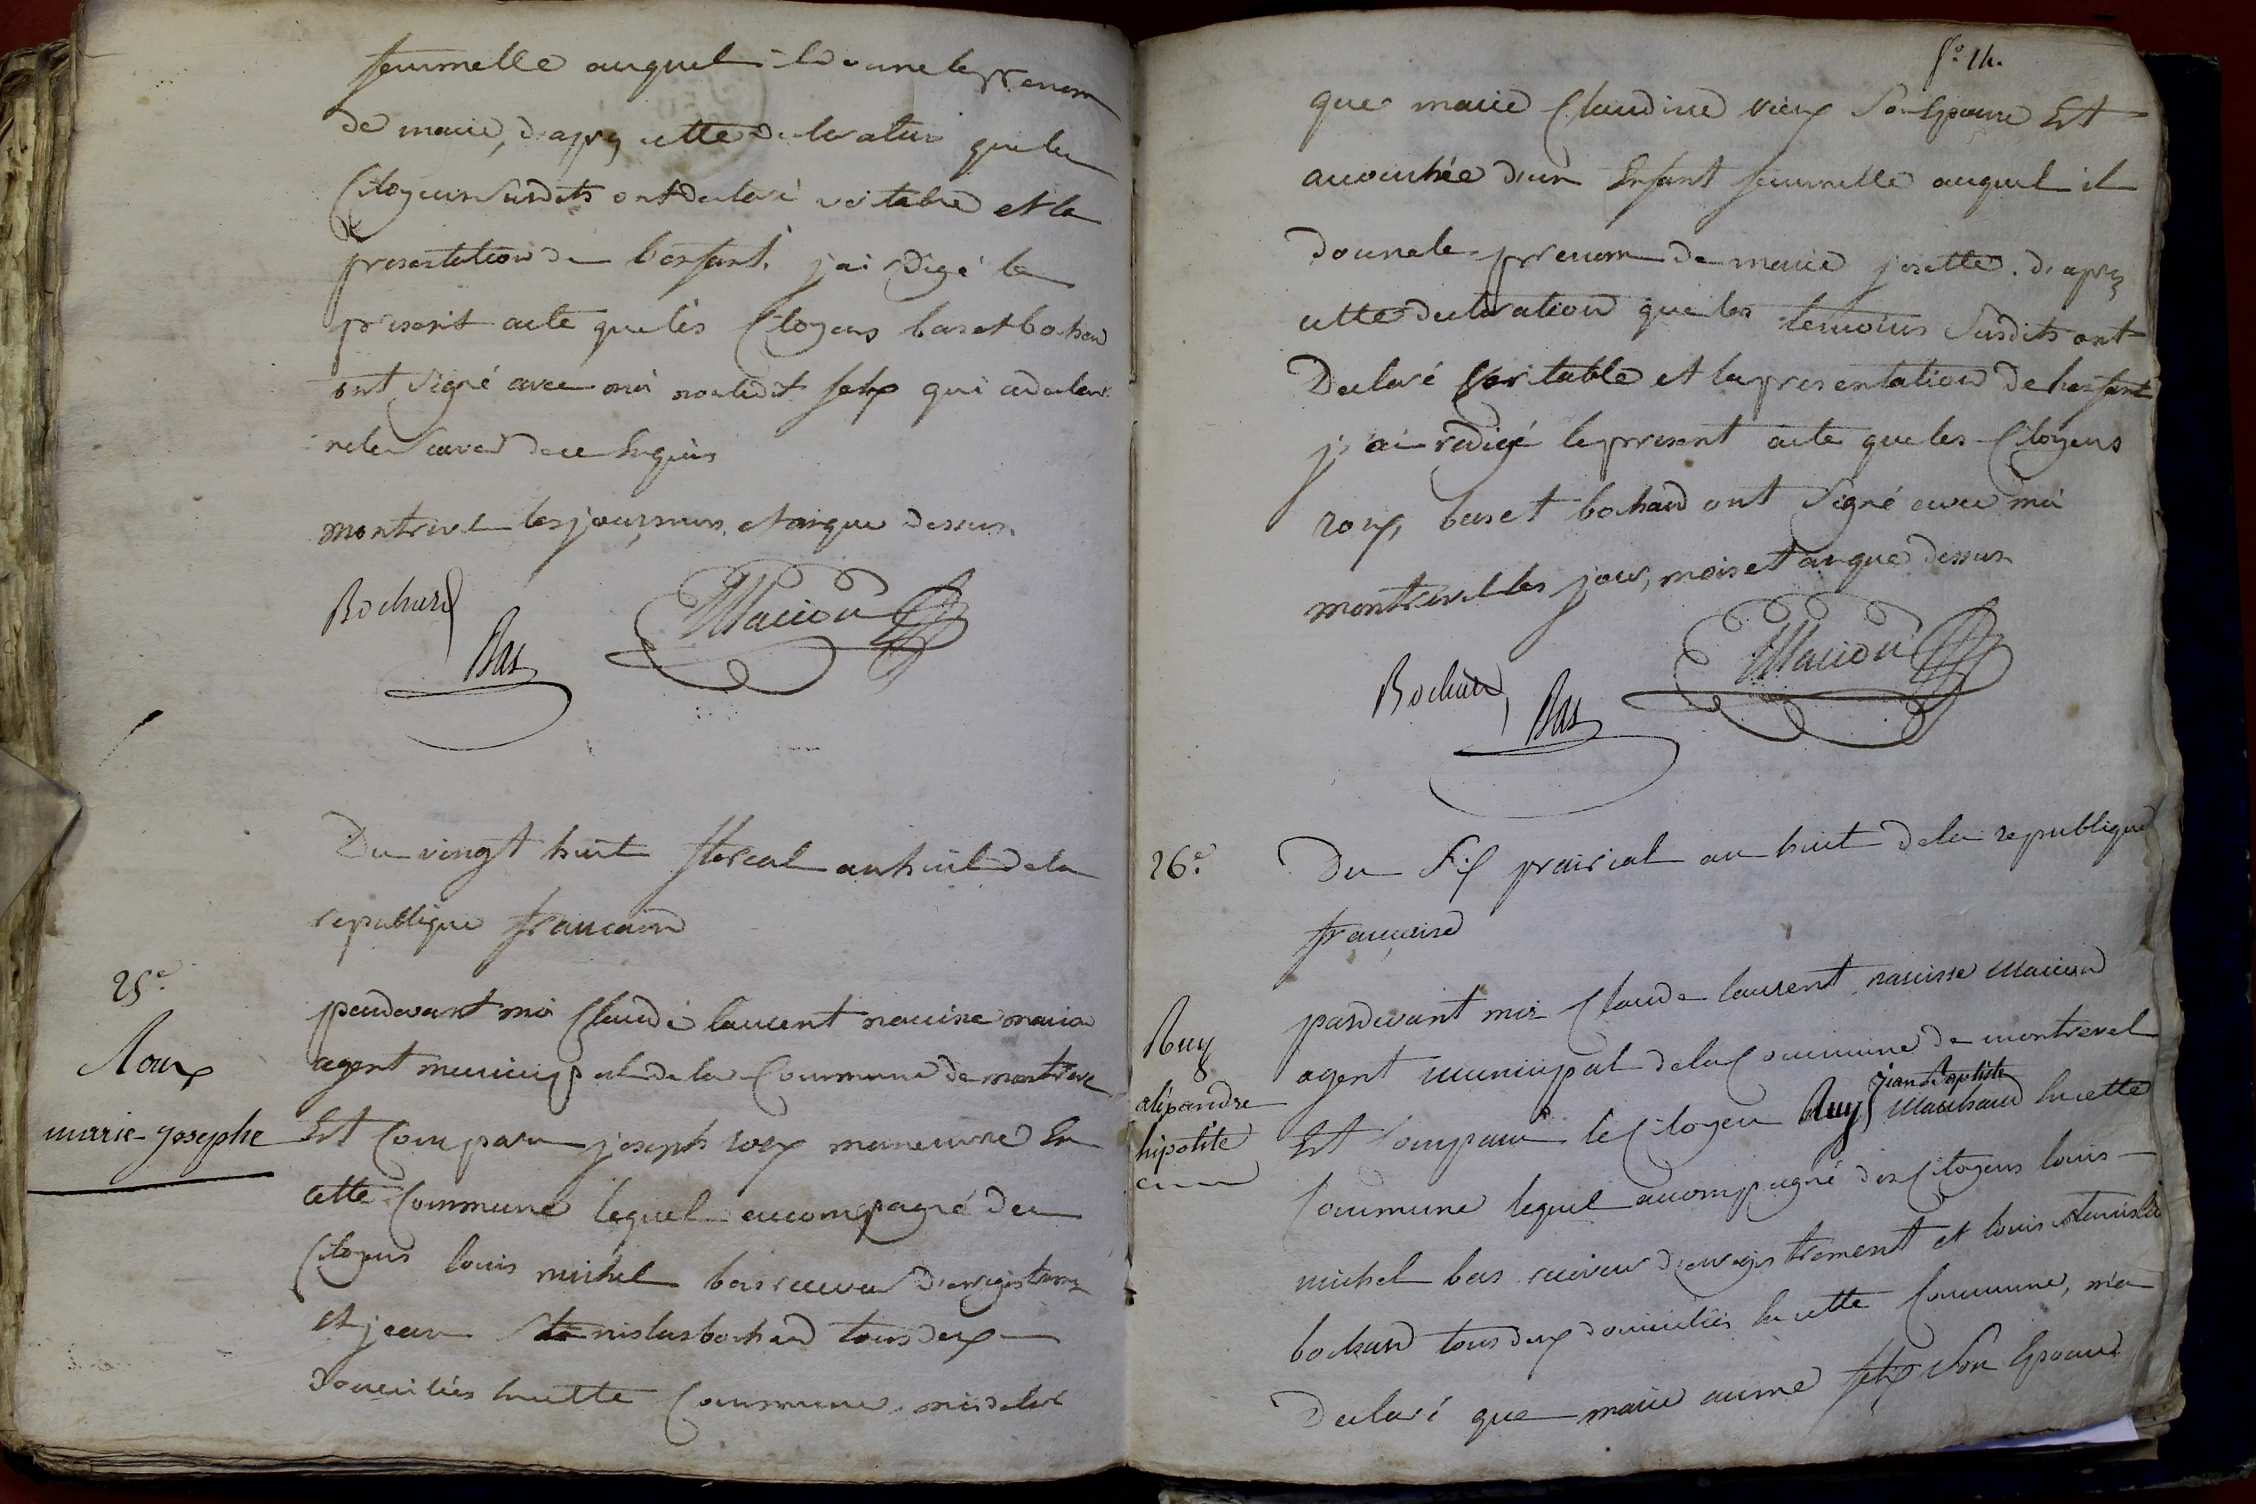 femmelle auquel il donne le prenom
de marie, d'apres cette declaration que les
Citoyens susdits ont declaré veritable et la
presentation de l'enfant. j'ai redigé le
present acte que les Citoyens bas et bochard
ont signé avec moi non ledit felix qui a declaré
ne le savoir de ce enquis
montrevel les jour, mois et an que dessus
Bochard
Bas
Maciou
Du vingt huit floreal an huit de la
republique francaise
25e
pardevant moi Claude laurent narcisse maciou
agent municipal de la Commune de montrevel
Roux
marie-josephe
Est Comparu joseph roux maneuvre En
cette Commune lequel accompagné des
Citoyens louis michel bas receveur d'enregistrement
et jean Stanislas bochard tous deux
domiciliés En cette Commune, m'a declaré
fo. 14.
que marie Claudine vieux Son Epouse Est
accouchée d'un Enfant femmelle auquel il
donne le prenom de marie josette. d'apres
cette declaration que les temoins susdits ont
Declaré Veritable et la presentation de l'enfant
j'ai redigé le present acte que les Citoyens
roux, bas et bochard ont signé avec moi
montrevel les jour, mois et an que dessus
Bochard
Bas
Maciou
26e
Du Six prairial an huit de la republique
francaise
pardevant moi Claude laurent narcisse Maciou
agent municipal de la Commune de montrevel
Ruy
alexandre
hipolite
jean Baptiste
Est Comparu le Citoyen Ruy Marchand En cette
Commune lequel accompagné des Citoyens louis
michel bas receveur d'enregistrement et louis stanislas
bochard tous deux domiciliés En cette Commune, m'a
Declaré que marie aimé felix son Epouse